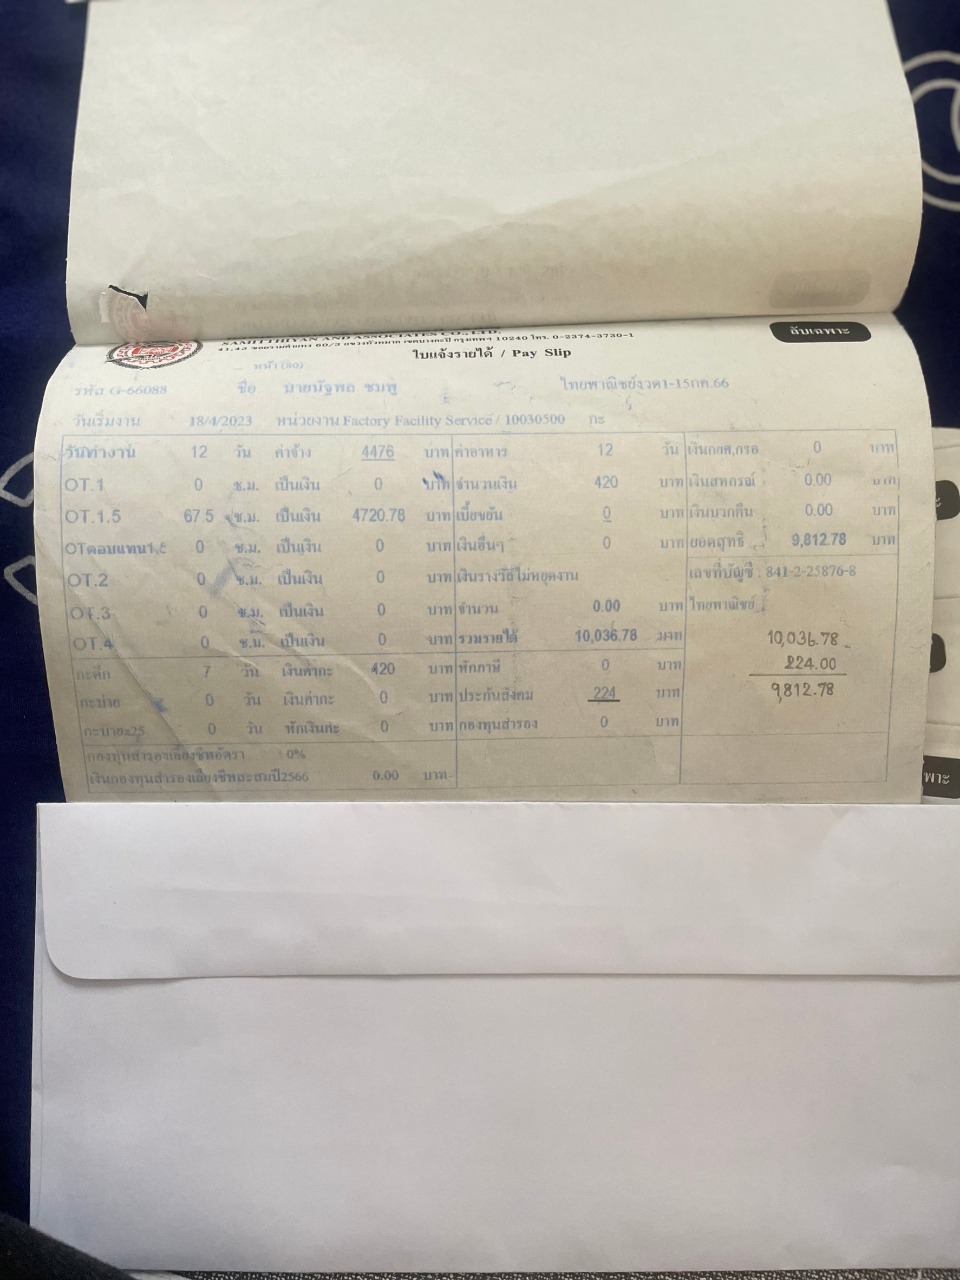 SAMITTHIYAN AND ASSOCIATES CO., LTD.
41,43 ซอยรามคำแหง 60/3 แขวงหัวหมาก เขตบางกะปิ กรุงเทพฯ 10240 โทร. 0-2374-3730-1
ลับเฉพาะ
ใบแจ้งรายได้ / Pay Slip
รหัส G-66088 ชื่อ นายนัฐพล ชมพู ไทยพาณิชย์งวด1-15กค.66
วันเริ่มงาน 18/4/2023 หน่วยงาน Factory Facility Service / 10030500 กะ
วันทำงาน 12 วัน ค่าจ้าง 4476 บาท ค่าอาหาร 12 วัน เงินกยศ,กรอ 0 บาท
OT.1 0 ช.ม. เป็นเงิน 0 บาท จำนวนเงิน 420 บาท เงินสหกรณ์ : 0.00 บาท
OT.1.5 67.5 ช.ม. เป็นเงิน 4720.78 บาท เบี้ยขยัน 0 บาท เงินบวกคืน : 0.00 บาท
OTตอบแทน1.5 0 ช.ม. เป็นเงิน 0 บาท เงินอื่นๆ 0 บาท ยอดสุทธิ : 9,812.78 บาท
OT.2 0 ช.ม. เป็นเงิน 0 บาท เงินรางวัลไม่หยุดงาน เลขที่บัญชี : 841-2-25876-8
OT.3 0 ช.ม. เป็นเงิน 0 บาท จำนวน 0.00 บาท ไทยพาณิชย์
OT.4 0 ช.ม. เป็นเงิน 0 บาท รวมรายได้ 10,036.78 บาท 10,036.78 -
กะดึก 7 วัน เงินค่ากะ 420 บาท หักภาษี 0 บาท 224.00
กะบ่าย 0 วัน เงินค่ากะ 0 บาท ประกันสังคม 224 บาท 9,812.78
กะบ่าย25 0 วัน หักเงินกะ 0 บาท กองทุนสำรอง 0 บาท
กองทุนสำรองเลี้ยงชีพอัตรา : 0%
เงินกองทุนสำรองเลี้ยงชีพสะสมปี2566 0.00 บาท
พาะ